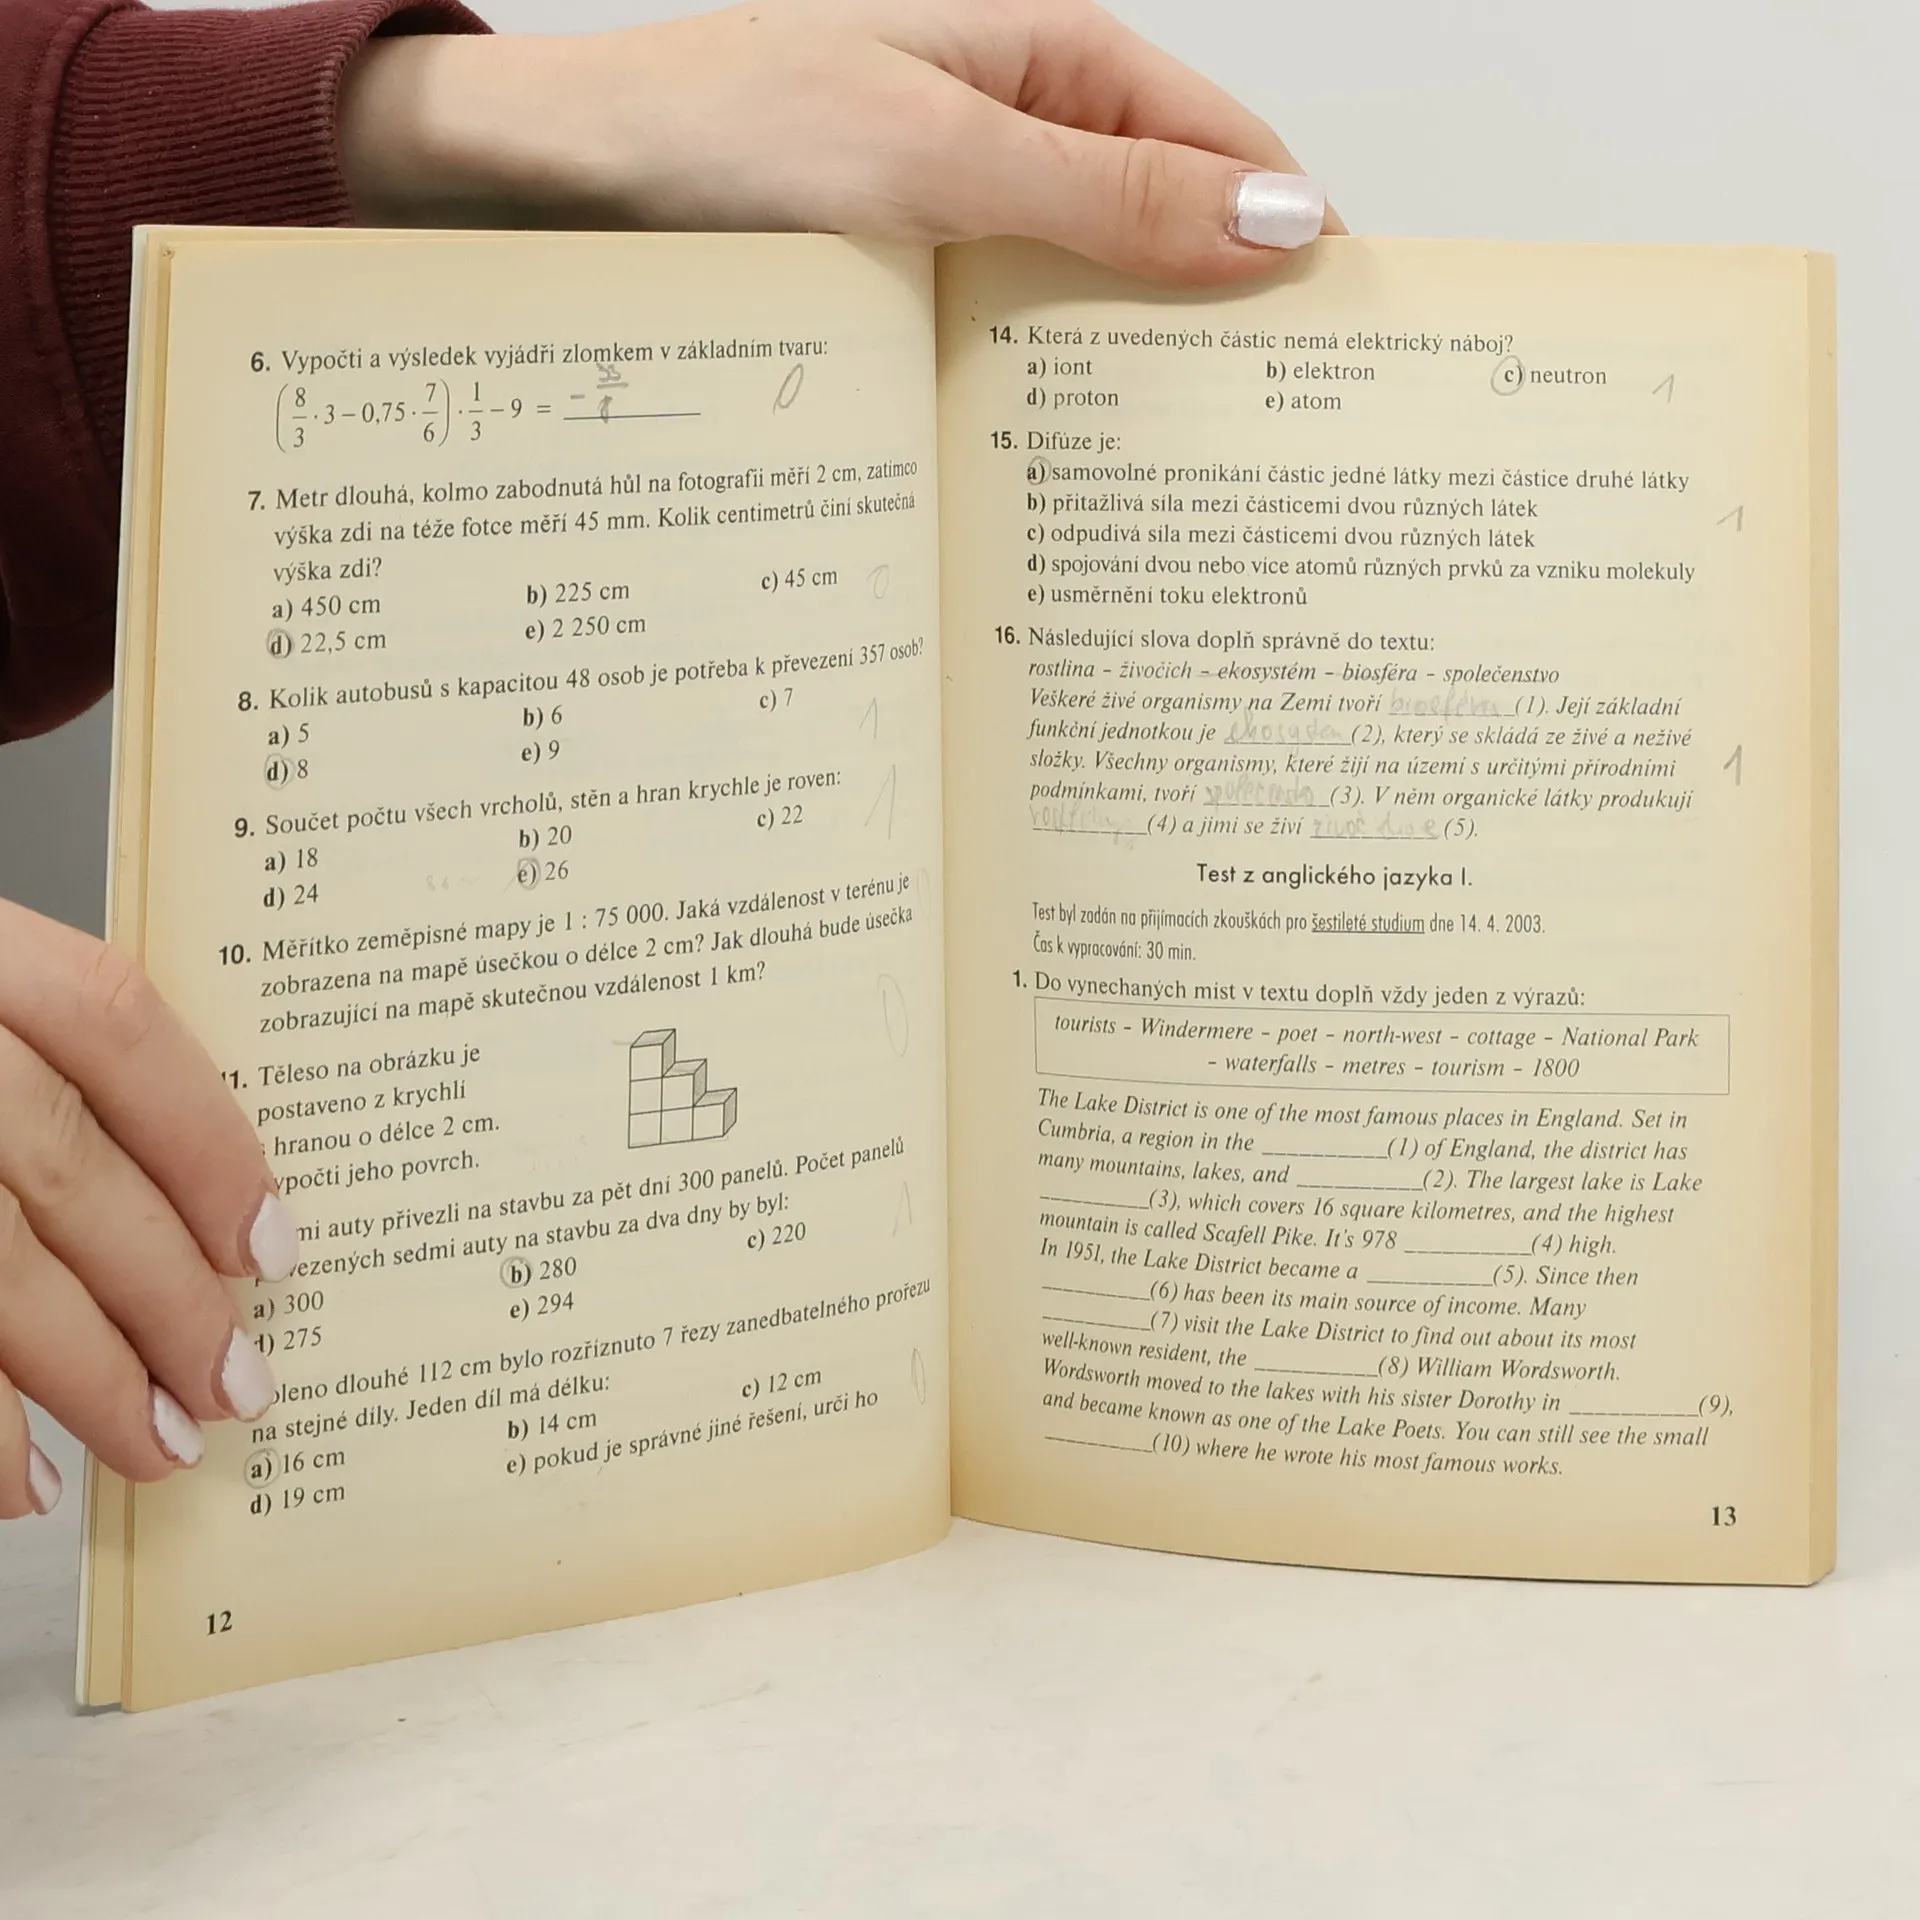 6. Vypočti a výsledek vyjádři zlomkem v základním tvaru:
(8/3 · 3 – 0,75 · 7/6) · 1/3 – 9 =
0
7. Metr dlouhá, kolmo zabodnutá hůl na fotografii měří 2 cm, zatímco
výška zdi na téže fotce měří 45 mm. Kolik centimetrů činí skutečná
výška zdi?
a) 450 cm b) 225 cm c) 45 cm 0
d) 22,5 cm e) 2 250 cm
8. Kolik autobusů s kapacitou 48 osob je potřeba k převezení 357 osob?
a) 5 b) 6 c) 7 1
d) 8 e) 9
9. Součet počtu všech vrcholů, stěn a hran krychle je roven:
a) 18 b) 20 c) 22 1
d) 24 e) 26
10. Měřítko zeměpisné mapy je 1 : 75 000. Jaká vzdálenost v terénu je
zobrazena na mapě úsečkou o délce 2 cm? Jak dlouhá bude úsečka
zobrazující na mapě skutečnou vzdálenost 1 km?
0
11. Těleso na obrázku je
postaveno z krychlí
hranou o délce 2 cm.
ypočti jeho povrch.
mi auty přivezli na stavbu za pět dní 300 panelů. Počet panelů
vezených sedmi auty na stavbu za dva dny by byl: 1
a) 300 b) 280 c) 220
d) 275 e) 294
oleno dlouhé 112 cm bylo rozříznuto 7 řezy zanedbatelného prořezu
na stejné díly. Jeden díl má délku: 0
a) 16 cm b) 14 cm c) 12 cm
d) 19 cm e) pokud je správné jiné řešení, urči ho
12
14. Která z uvedených částic nemá elektrický náboj?
a) iont b) elektron c) neutron 1
d) proton e) atom
15. Difúze je:
a) samovolné pronikání částic jedné látky mezi částice druhé látky
b) přitažlivá síla mezi částicemi dvou různých látek 1
c) odpudivá síla mezi částicemi dvou různých látek
d) spojování dvou nebo více atomů různých prvků za vzniku molekuly
e) usměrnění toku elektronů
16. Následující slova doplň správně do textu:
rostlina – živočich – ekosystém – biosféra – společenstvo
Veškeré živé organismy na Zemi tvoří (1). Její základní
funkční jednotkou je (2), který se skládá ze živé a neživé
složky. Všechny organismy, které žijí na území s určitými přírodními 1
podmínkami, tvoří (3). V něm organické látky produkují
(4) a jimi se živí (5).
Test z anglického jazyka I.
Test byl zadán na přijímacích zkouškách pro šestileté studium dne 14. 4. 2003.
Čas k vypracování: 30 min.
1. Do vynechaných míst v textu doplň vždy jeden z výrazů:
tourists – Windermere – poet – north-west – cottage – National Park
– waterfalls – metres – tourism – 1800
The Lake District is one of the most famous places in England. Set in
Cumbria, a region in the __________(1) of England, the district has
many mountains, lakes, and __________(2). The largest lake is Lake
__________(3), which covers 16 square kilometres, and the highest
mountain is called Scafell Pike. It's 978 __________(4) high.
In 1951, the Lake District became a __________(5). Since then
__________(6) has been its main source of income. Many
__________(7) visit the Lake District to find out about its most
well-known resident, the __________(8) William Wordsworth.
Wordsworth moved to the lakes with his sister Dorothy in __________(9),
and became known as one of the Lake Poets. You can still see the small
__________(10) where he wrote his most famous works.
13